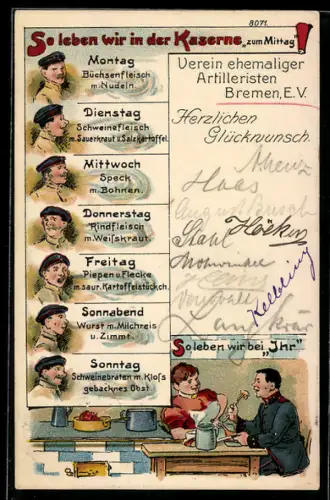 8071.
So leben wir in der Kaserne „zum Mittag"!
Montag
Büchsenfleisch
m. Nudeln.
Dienstag
Schweinefleisch
m. Sauerkraut u. Salzkartoffel.
Mittwoch
Speck
m. Bohnen.
Donnerstag
Rindfleisch
m. Weißkraut.
Freitag
Piepen u. Flecke
m. saur. Kartoffelstückch.
Sonnabend
Wurst m. Milchreis
u. Zimmt.
Sonntag
Schweinebraten m. Kloſs
gebacknes Obst.
Verein ehemaliger
Artilleristen
Bremen, E.V.
Herzlichen
Glückwunsch.
Haes
August
Stahl
Höcker
Kelbling
So leben wir bei „Ihr"